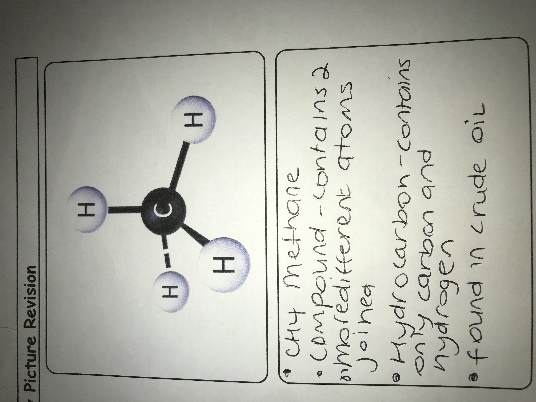 Picture Revision
H
H
C
H
H
• CH4 Methane
• Compound - contains 2
or more different atoms
joined
• Hydrocarbon - contains
only carbon and
hydrogen
• found in crude oil